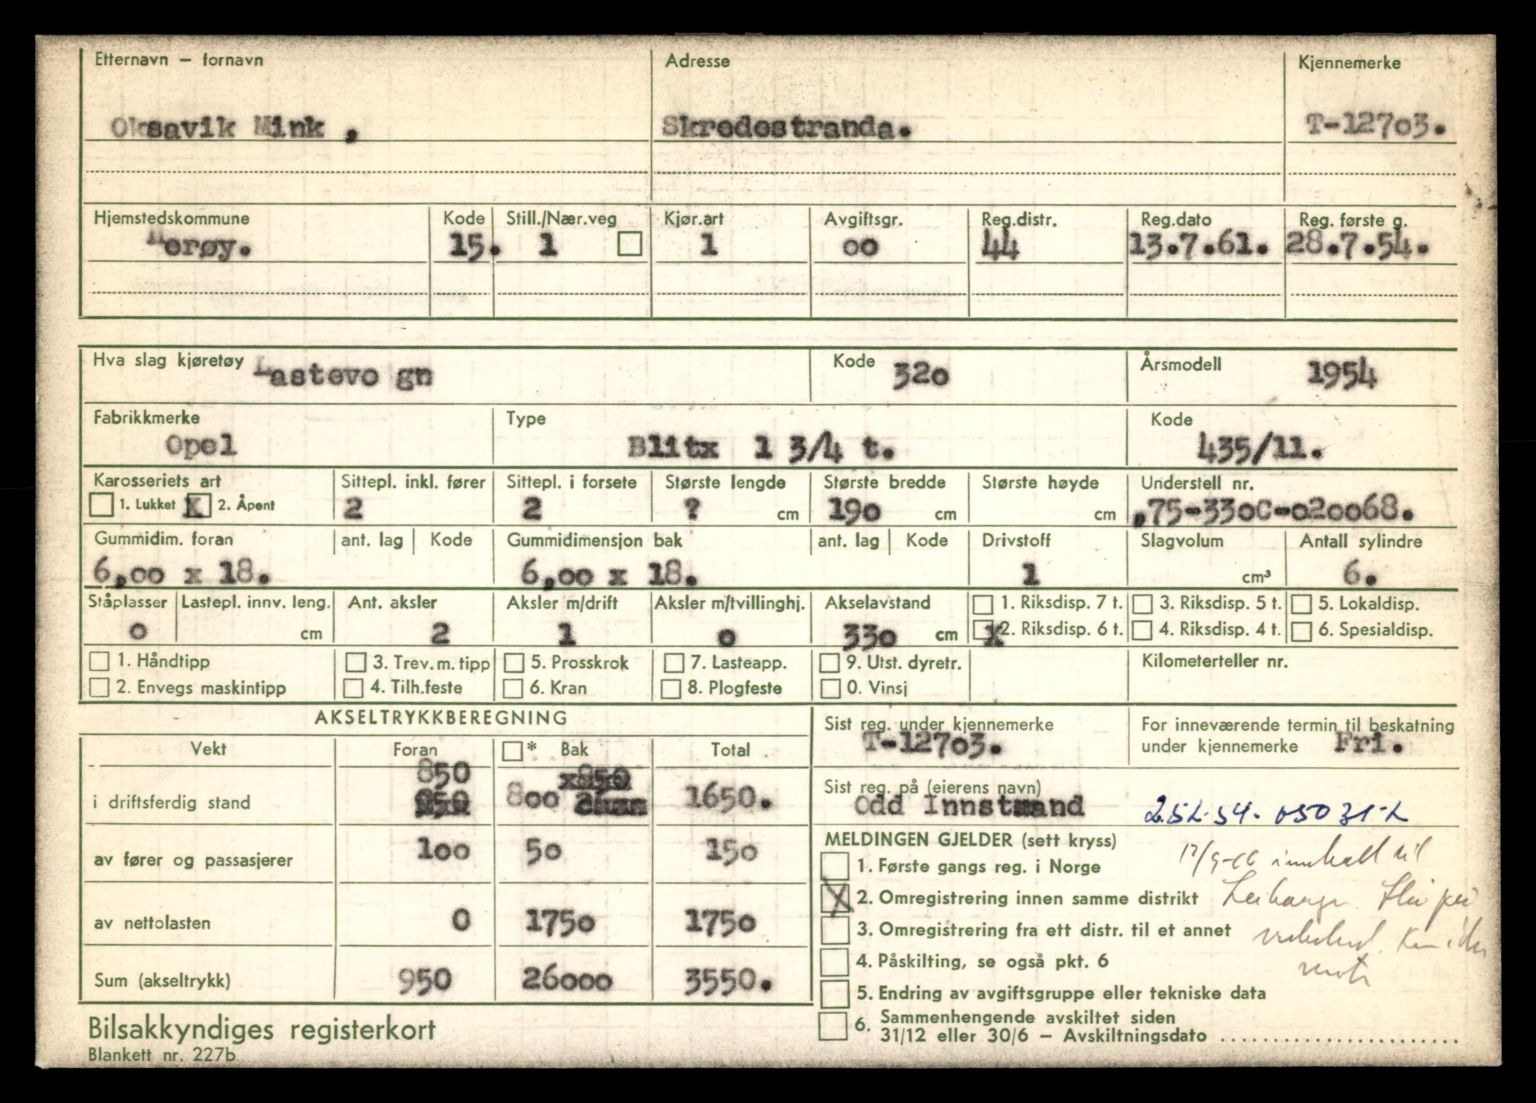 Etternavn – fornavn Adresse Kjennemerke
Oksavik Mink , Skredestranda. T-12703.
Hjemstedskommune Kode Still./Nær.veg Kjør.art Avgiftsgr. Reg.distr. Reg.dato Reg. første g.
Herøy. 15. 1 1 oo 44 13.7.61. 28.7.54.
Hva slag kjøretøy Lastevo gn Kode 320 Årsmodell 1954
Fabrikkmerke Type Kode
Opel Blitx 1 3/4 t. 435/11.
Karosseriets art Sittepl. inkl. fører Sittepl. i forsete Største lengde Største bredde Største høyde Understell nr.
1. Lukket X 2. Åpent 2 2 ? cm 190 cm cm ,75-330C-020068.
Gummidim. foran ant. lag Kode Gummidimensjon bak ant. lag Kode Drivstoff Slagvolum Antall sylindre
6,00 x 18. 6,00 x 18. 1 cm³ 6.
Ståplasser Lastepl. innv. leng. Ant. aksler Aksler m/drift Aksler m/tvillinghj. Akselavstand 1. Riksdisp. 7 t. 3. Riksdisp. 5 t. 5. Lokaldisp.
0 cm 2 1 0 330 cm X 2. Riksdisp. 6 t. 4. Riksdisp. 4 t. 6. Spesialdisp.
1. Håndtipp 3. Trev. m. tipp 5. Prosskrok 7. Lasteapp. 9. Utst. dyretr. Kilometerteller nr.
2. Envegs maskintipp 4. Tilh.feste 6. Kran 8. Plogfeste 0. Vinsj
AKSELTRYKKBEREGNING Sist reg. under kjennemerke For inneværende termin til beskatning
T-12703. under kjennemerke Fri.
Vekt Foran * Bak Total
850
i driftsferdig stand 800 1650.
Sist reg. på (eierens navn)
Odd Innstrand 252-54-05031-2
av fører og passasjerer 100 50 150
av nettolasten 0 1750 1750
Sum (akseltrykk) 950 26000 3550.
MELDINGEN GJELDER (sett kryss)
1. Første gangs reg. i Norge
X 2. Omregistrering innen samme distrikt
3. Omregistrering fra ett distr. til et annet
4. Påskilting, se også pkt. 6
5. Endring av avgiftsgruppe eller tekniske data
6. Sammenhengende avskiltet siden
31/12 eller 30/6 – Avskiltningsdato ........................
Bilsakkyndiges registerkort
Blankett nr. 227b